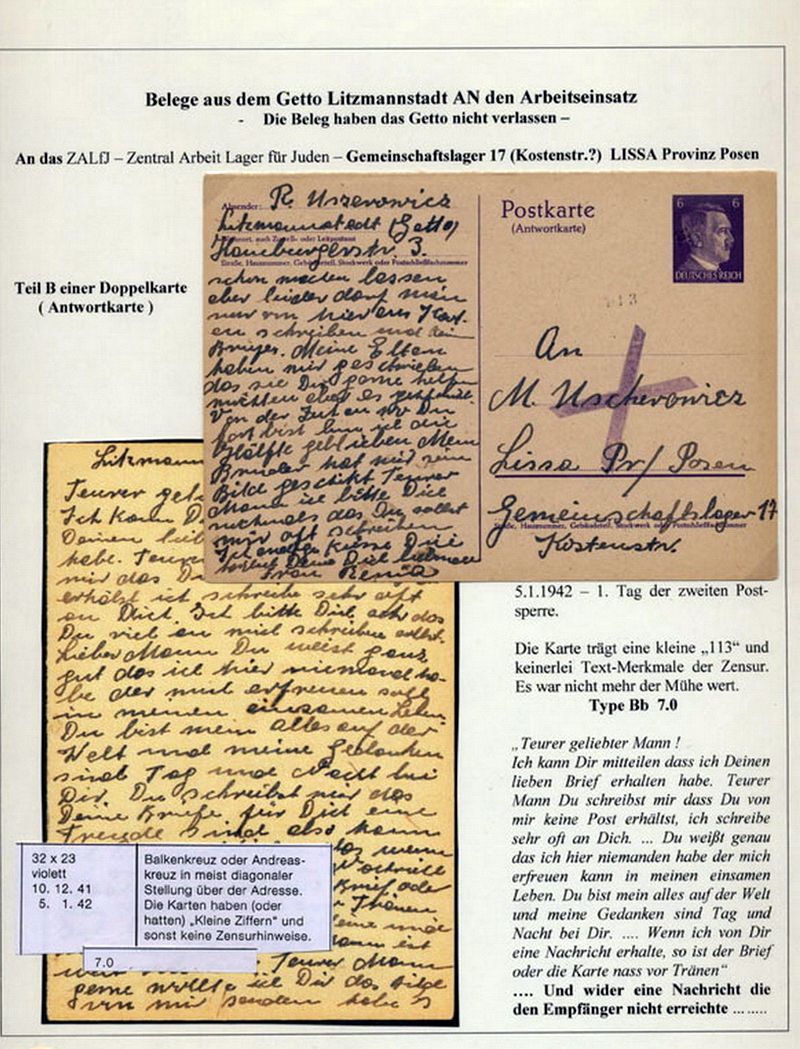 Belege aus dem Getto Litzmannstadt AN den Arbeitseinsatz
- Die Beleg haben das Getto nicht verlassen –
An das ZALfJ – Zentral Arbeit Lager für Juden – Gemeinschaftslager 17 (Kostenstr.?) LISSA Provinz Posen
Teil B einer Doppelkarte
( Antwortkarte )
Absender: R. Uszerowicz
Litzmannstadt (Getto)
Wohnort, auch Zustell- oder Leitpostamt
Hamburgerstr. 3.
Straße, Hausnummer, Gebäudeteil, Stockwerk oder Postschließfachnummer
schon machen lassen
aber leider darf man
nur von hier aus Kart-
en schreiben und kein
Briefe. Meine Eltern
haben mir geschrieben
das sie Dir gerne helfen
möchten aber es
Von der
fort bist
Hälfte geblieben Mein
Bruder hat mir sein
Bild geschikt Teurer
Mann ich bitte Dich
nochmals das Du sollst
mir oft schreiben
Ich ende Küsse Dich
Deine Dich liebende
Frau Renia
Postkarte
(Antwortkarte)
6 6
DEUTSCHES REICH
113
An
M. Uscherowicz
Lissa Pr/ Posen
Gemeinschaftslager 17
Straße, Hausnummer, Gebäudeteil, Stockwerk oder Postschließfachnummer
Kostenstr.
Litzmann
Teurer gel
Ich kann D
Deinen lieb
habe. Teure
mir das Du
erhälst ich schreibe sehr oft
an Dich. Ich bitte Dich ach das
Du viel an mich schreiben sollst.
Lieber Mann Du weist ganz
gut das ich hier niemand ha-
be der mich erfreuen soll
in meinen einsamen Leben
Du bist mein alles auf der
Welt und meine Gedanken
sind Tag und Nacht bei
Dir. Du schreibst mir das
Deine Briefe für Dich eine
Freude sind also kann
Brief oder
Tränen
Teurer Mann
gerne wollte ich Dir das
mir senden habe
32 x 23
violett
10. 12. 41
5. 1. 42
Balkenkreuz oder Andreas-
kreuz in meist diagonaler
Stellung über der Adresse.
Die Karten haben (oder
hatten) „Kleine Ziffern“ und
sonst keine Zensurhinweise.
7.0
5.1.1942 – 1. Tag der zweiten Post-
sperre.
Die Karte trägt eine kleine „113“ und
keinerlei Text-Merkmale der Zensur.
Es war nicht mehr der Mühe wert.
Type Bb 7.0
„Teurer geliebter Mann !
Ich kann Dir mitteilen dass ich Deinen
lieben Brief erhalten habe. Teurer
Mann Du schreibst mir dass Du von
mir keine Post erhältst, ich schreibe
sehr oft an Dich. ... Du weißt genau
das ich hier niemanden habe der mich
erfreuen kann in meinen einsamen
Leben. Du bist mein alles auf der Welt
und meine Gedanken sind Tag und
Nacht bei Dir. .... Wenn ich von Dir
eine Nachricht erhalte, so ist der Brief
oder die Karte nass vor Tränen“
.... Und wider eine Nachricht die
den Empfänger nicht erreichte ........